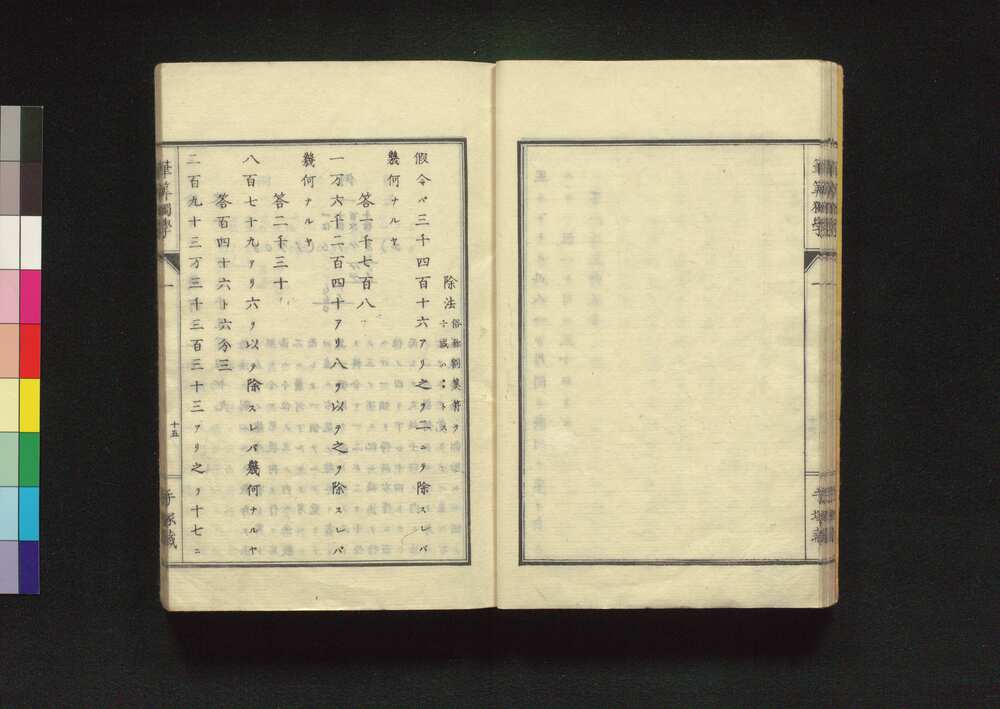 筆算獨學
一
除法 俗称割算符ヲ
÷或ハ：トス
假令ベ三千四百十六アリ之ヲ二ニヲ除スレバ
幾何ナルヤ
答一千七百八
一万六千二百四十アリ八ヲ以ヲ之ヲ除スレバ
幾何ナルヤ
答二千三十
八百七十九アリ六ヲ以ヲ除スレバ幾何ナルヤ
答百四十六ト六分三
二百九十三万三千三百三十三アリ之ヲ十七ニ
筆算獨學
一
十五
塚蔵